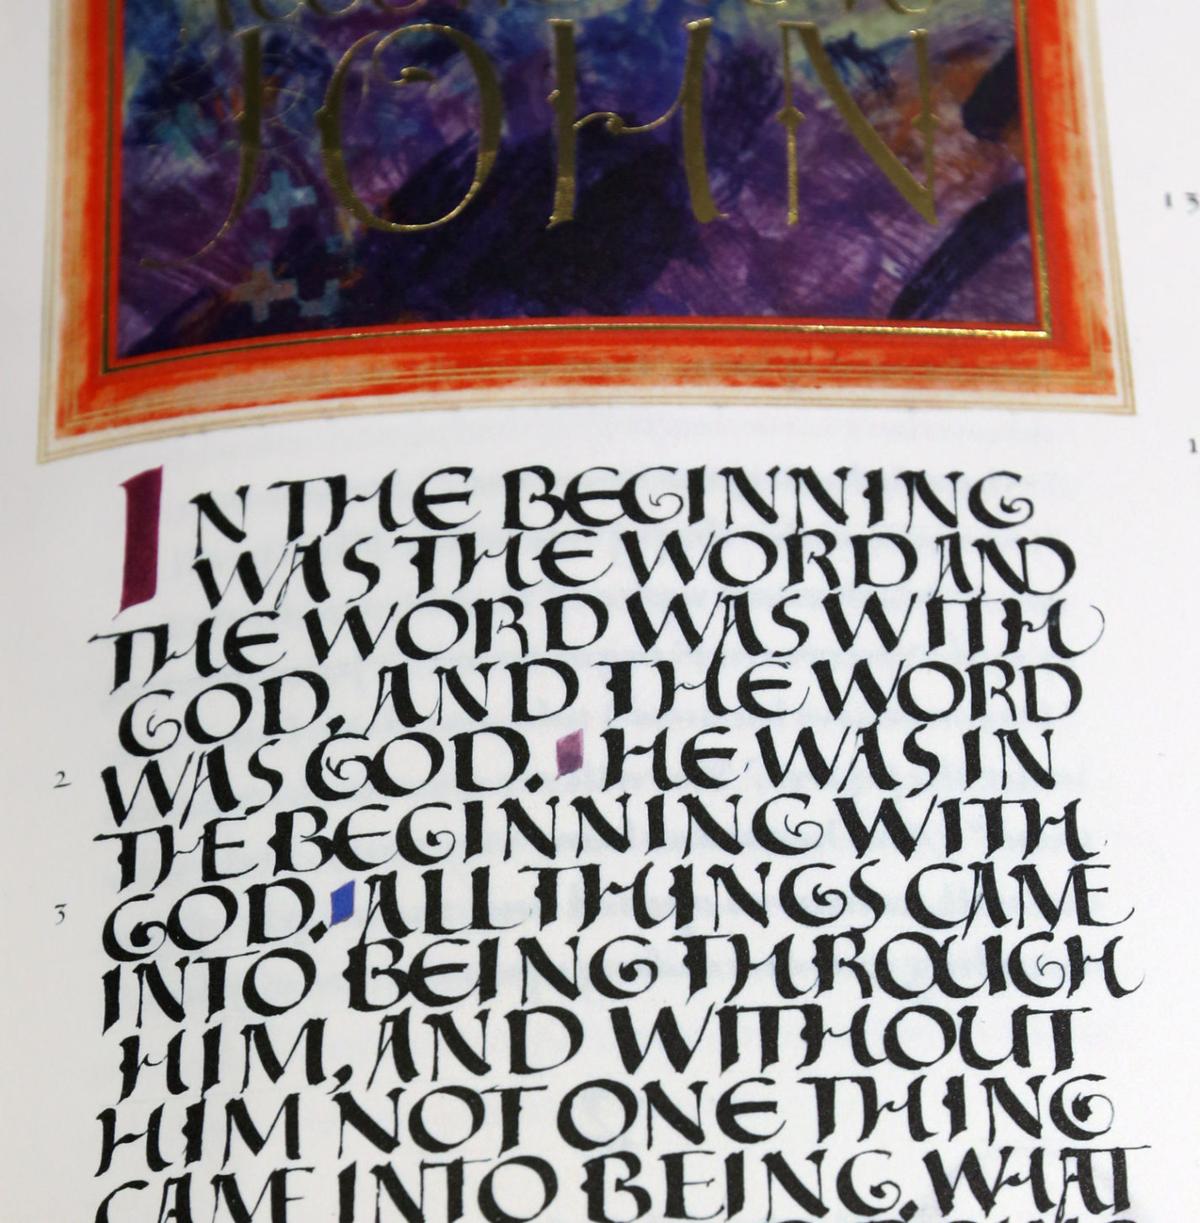 JOHN
13
1
IN THE BEGINNING
WAS THE WORD AND
THE WORD WAS WITH
GOD, AND THE WORD
2 WAS GOD. HE WAS IN
THE BEGINNING WITH
3 GOD. ALL THINGS CAME
INTO BEING THROUGH
HIM, AND WITHOUT
HIM NOT ONE THING
CAME INTO BEING. WHAT